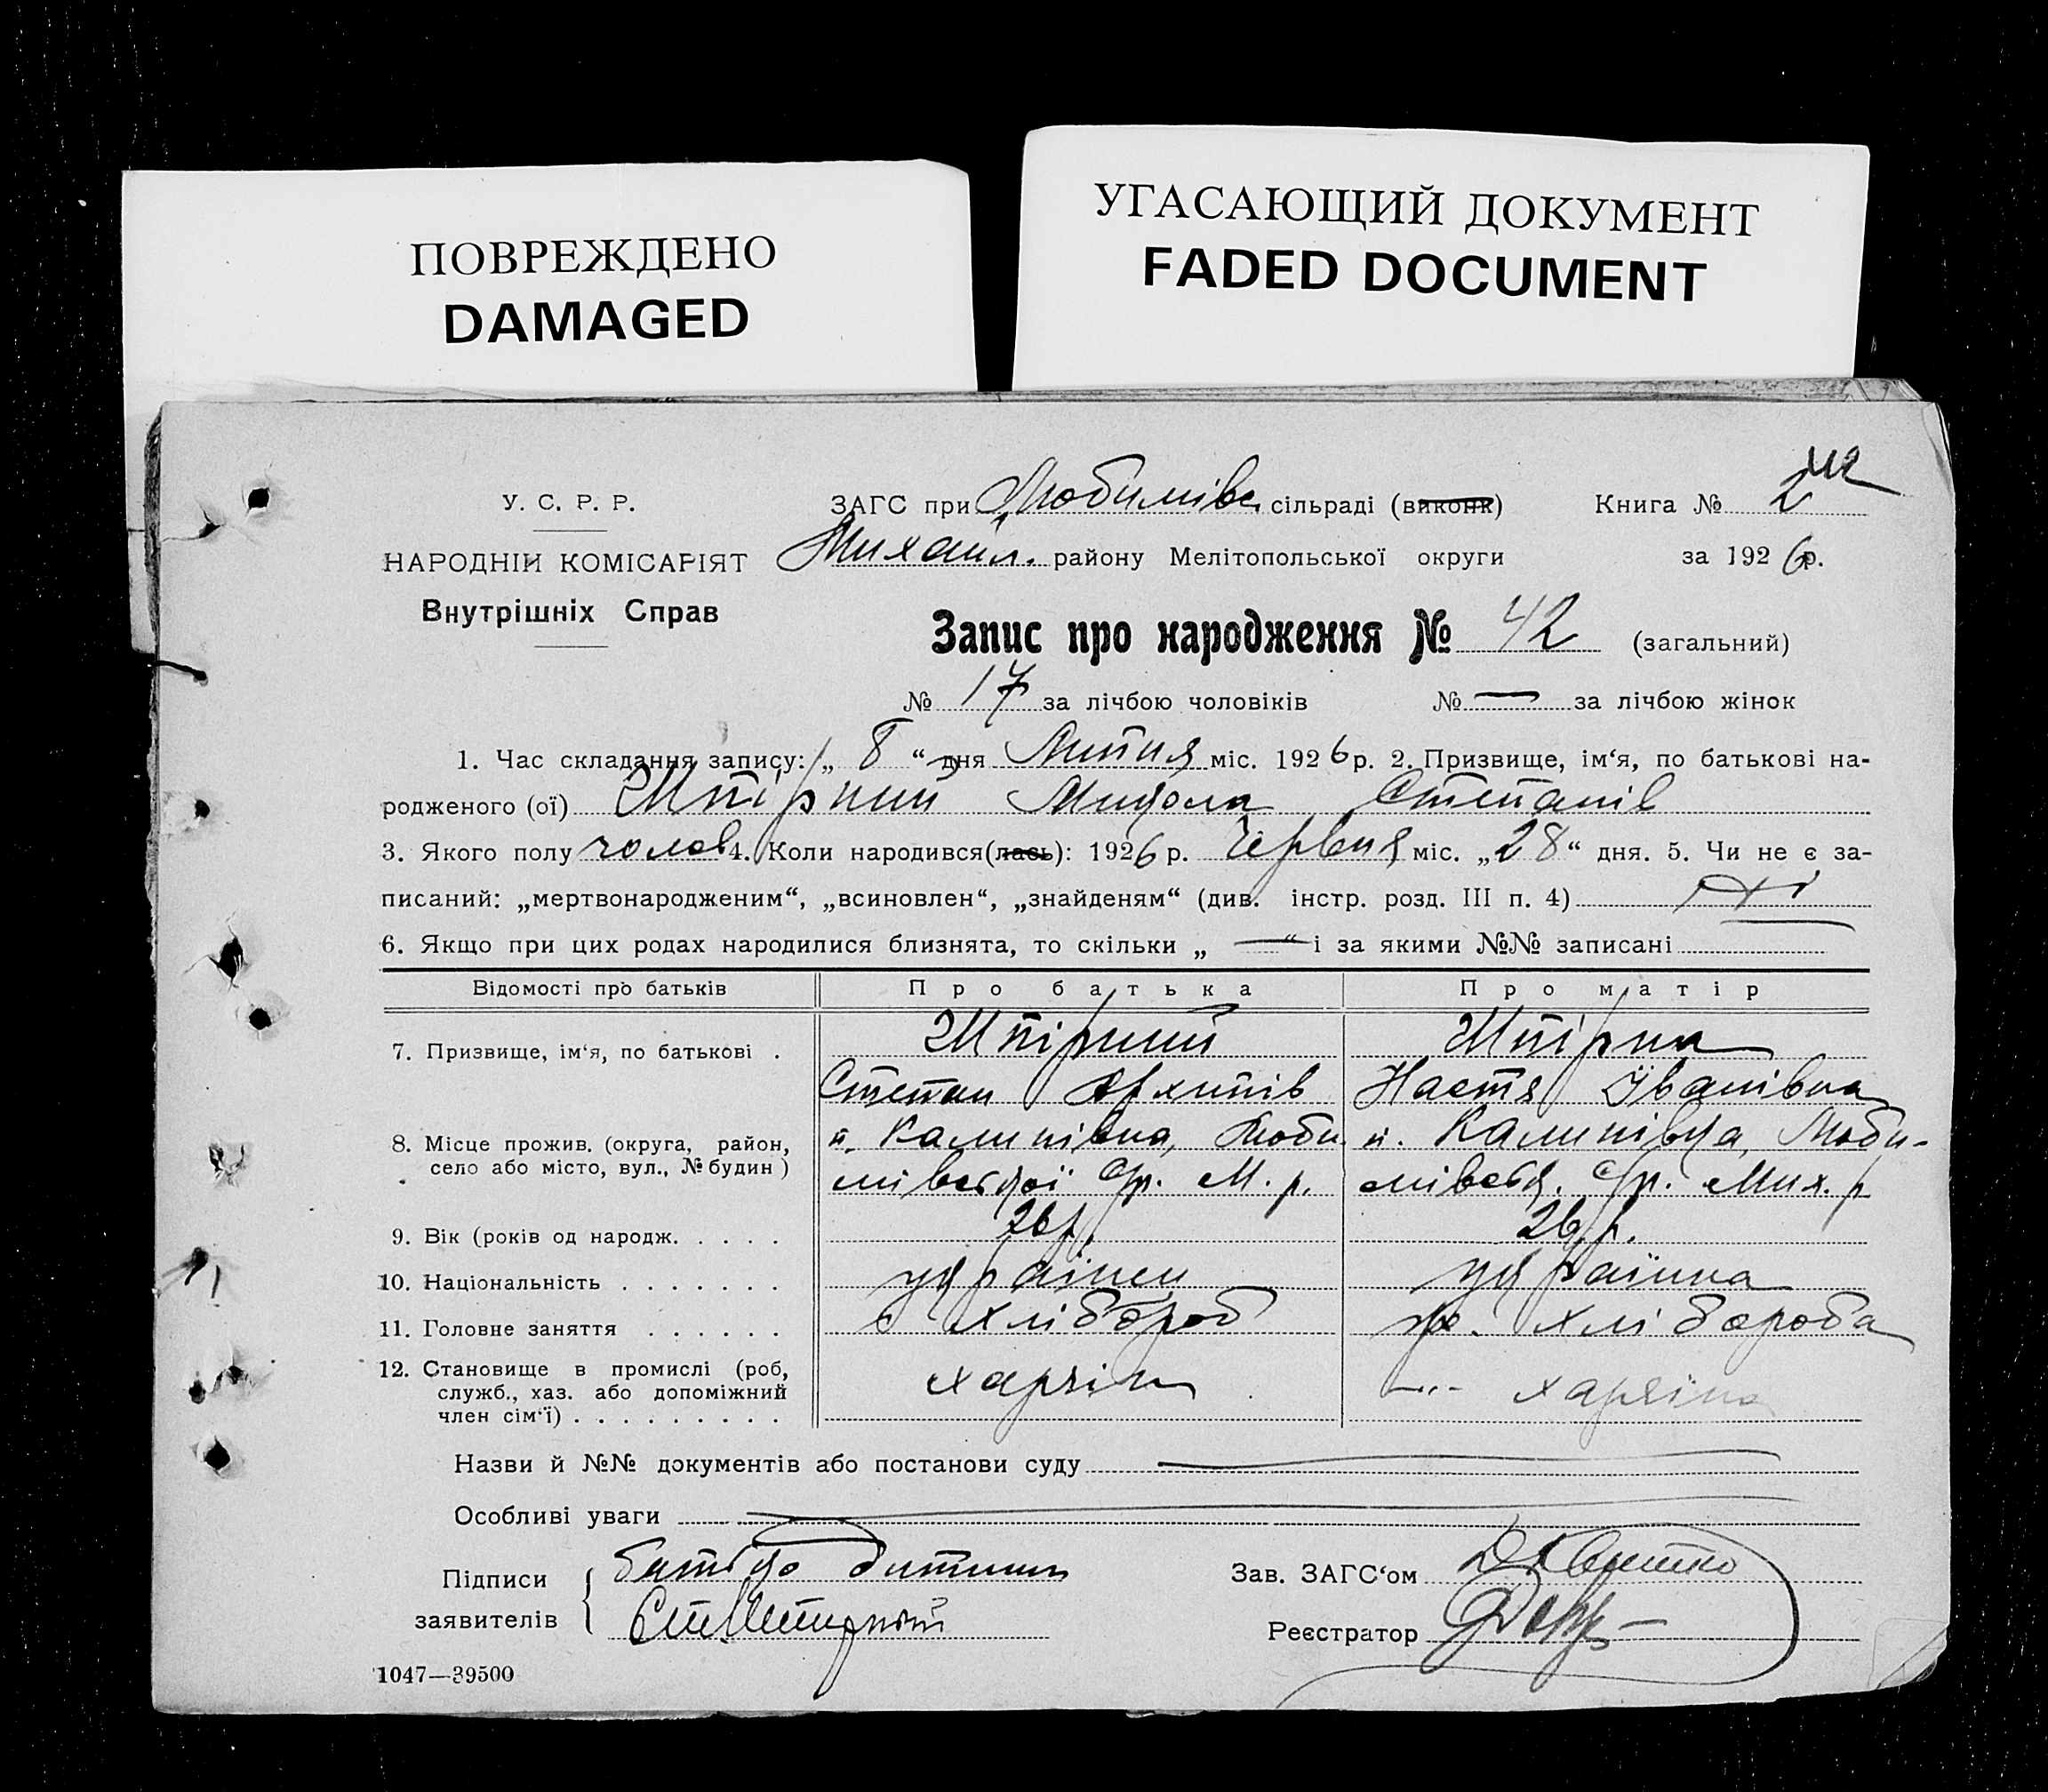 ПОВРЕЖДЕНО
DAMAGED
УГАСАЮЩИЙ ДОКУМЕНТ
FADED DOCUMENT
У. С. Р. Р.
НАРОДНІЙ КОМІСАРІЯТ
Внутрішніх Справ
ЗАГС при Любимівс. сільраді (виконк) Книга № 2
Михайл. району Мелітопольської округи за 1926 р.
Запис про народження № 42 (загальний)
№ 17 за лічбою чоловіків № — за лічбою жінок
1. Час складання запису: „ 8 “ дня Липня міс. 1926 р. 2. Призвище, ім‘я, по батькові на-
родженого (ої) Шпірний Микола Степанів
3. Якого полу чолов 4. Коли народився(лась): 1926 р. Червня міс. „28“ дня. 5. Чи не є за-
писаний: „мертвонародженим“, „всиновлен“, „знайденям“ (див. інстр. розд. III п. 4) Ні
6. Якщо при цих родах народилися близнята, то скільки „ — “ і за якими №№ записані —
Відомості про батьків Про батька Про матір
7. Призвище, ім‘я, по батькові . Шпірний Шпірна
Степан Архипів Настя Іванівна
8. Місце прожив. (округа, район, село або місто, вул., № будин) х. Калинівка, Люби- х. Калинівка, Люби-
мівської с/р. М. р. мівськ. с/р. Мих. р
9. Вік (років од народж. . . . . 26 р. 26 р.
10. Національність . . . . . . . українец українка
11. Головне заняття . . . . . . хлібороб хлібороба
12. Становище в промислі (роб, служб., хаз. або допоміжний член сім‘ї) . . . . . . . . . хазяїн —"— хазяїна
Назви й №№ документів або постанови суду —
Особливі уваги —
Підписи заявителів батько дитини
Ст Шпирний
Зав. ЗАГС‘ом
Реєстратор
1047—39500